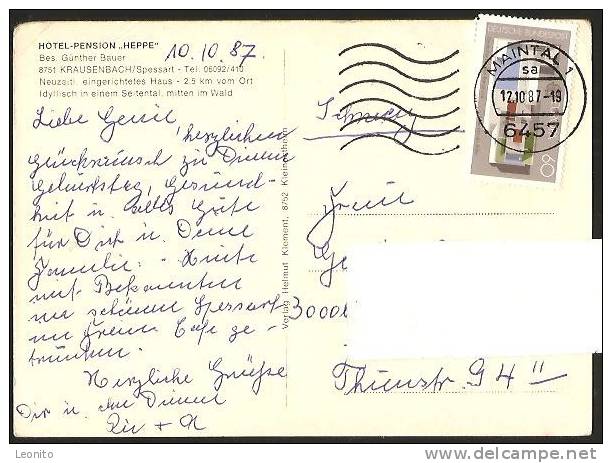 HOTEL-PENSION „HEPPE"
Bes. Günther Bauer
8751 KRAUSENBACH/Spessart - Tel. 06092/410
Neuzeitl. eingerichtetes Haus - 2,5 km vom Ort
Idyllisch in einem Seitental, mitten im Wald
10.10.87.
Liebe
herzlichen
Glückwunsch zu Deinem
Geburtstag, Gesund-
heit u. alles Gute
für Dich u. Deine
Familie. Heute
mit Bekannten
im schönen Spessart
Cafe ge-
trunken.
Herzliche Grüße
Dir u.
Verlag Helmut Klement, 8752 Kleinostheim
DEUTSCHE BUNDESPOST
60
MAINTAL 1
sa
12.10.87-19
6457
Schweiz
Frau
Ge
3000
Thunstr. 94 II
Leonito
www.delcampe.net